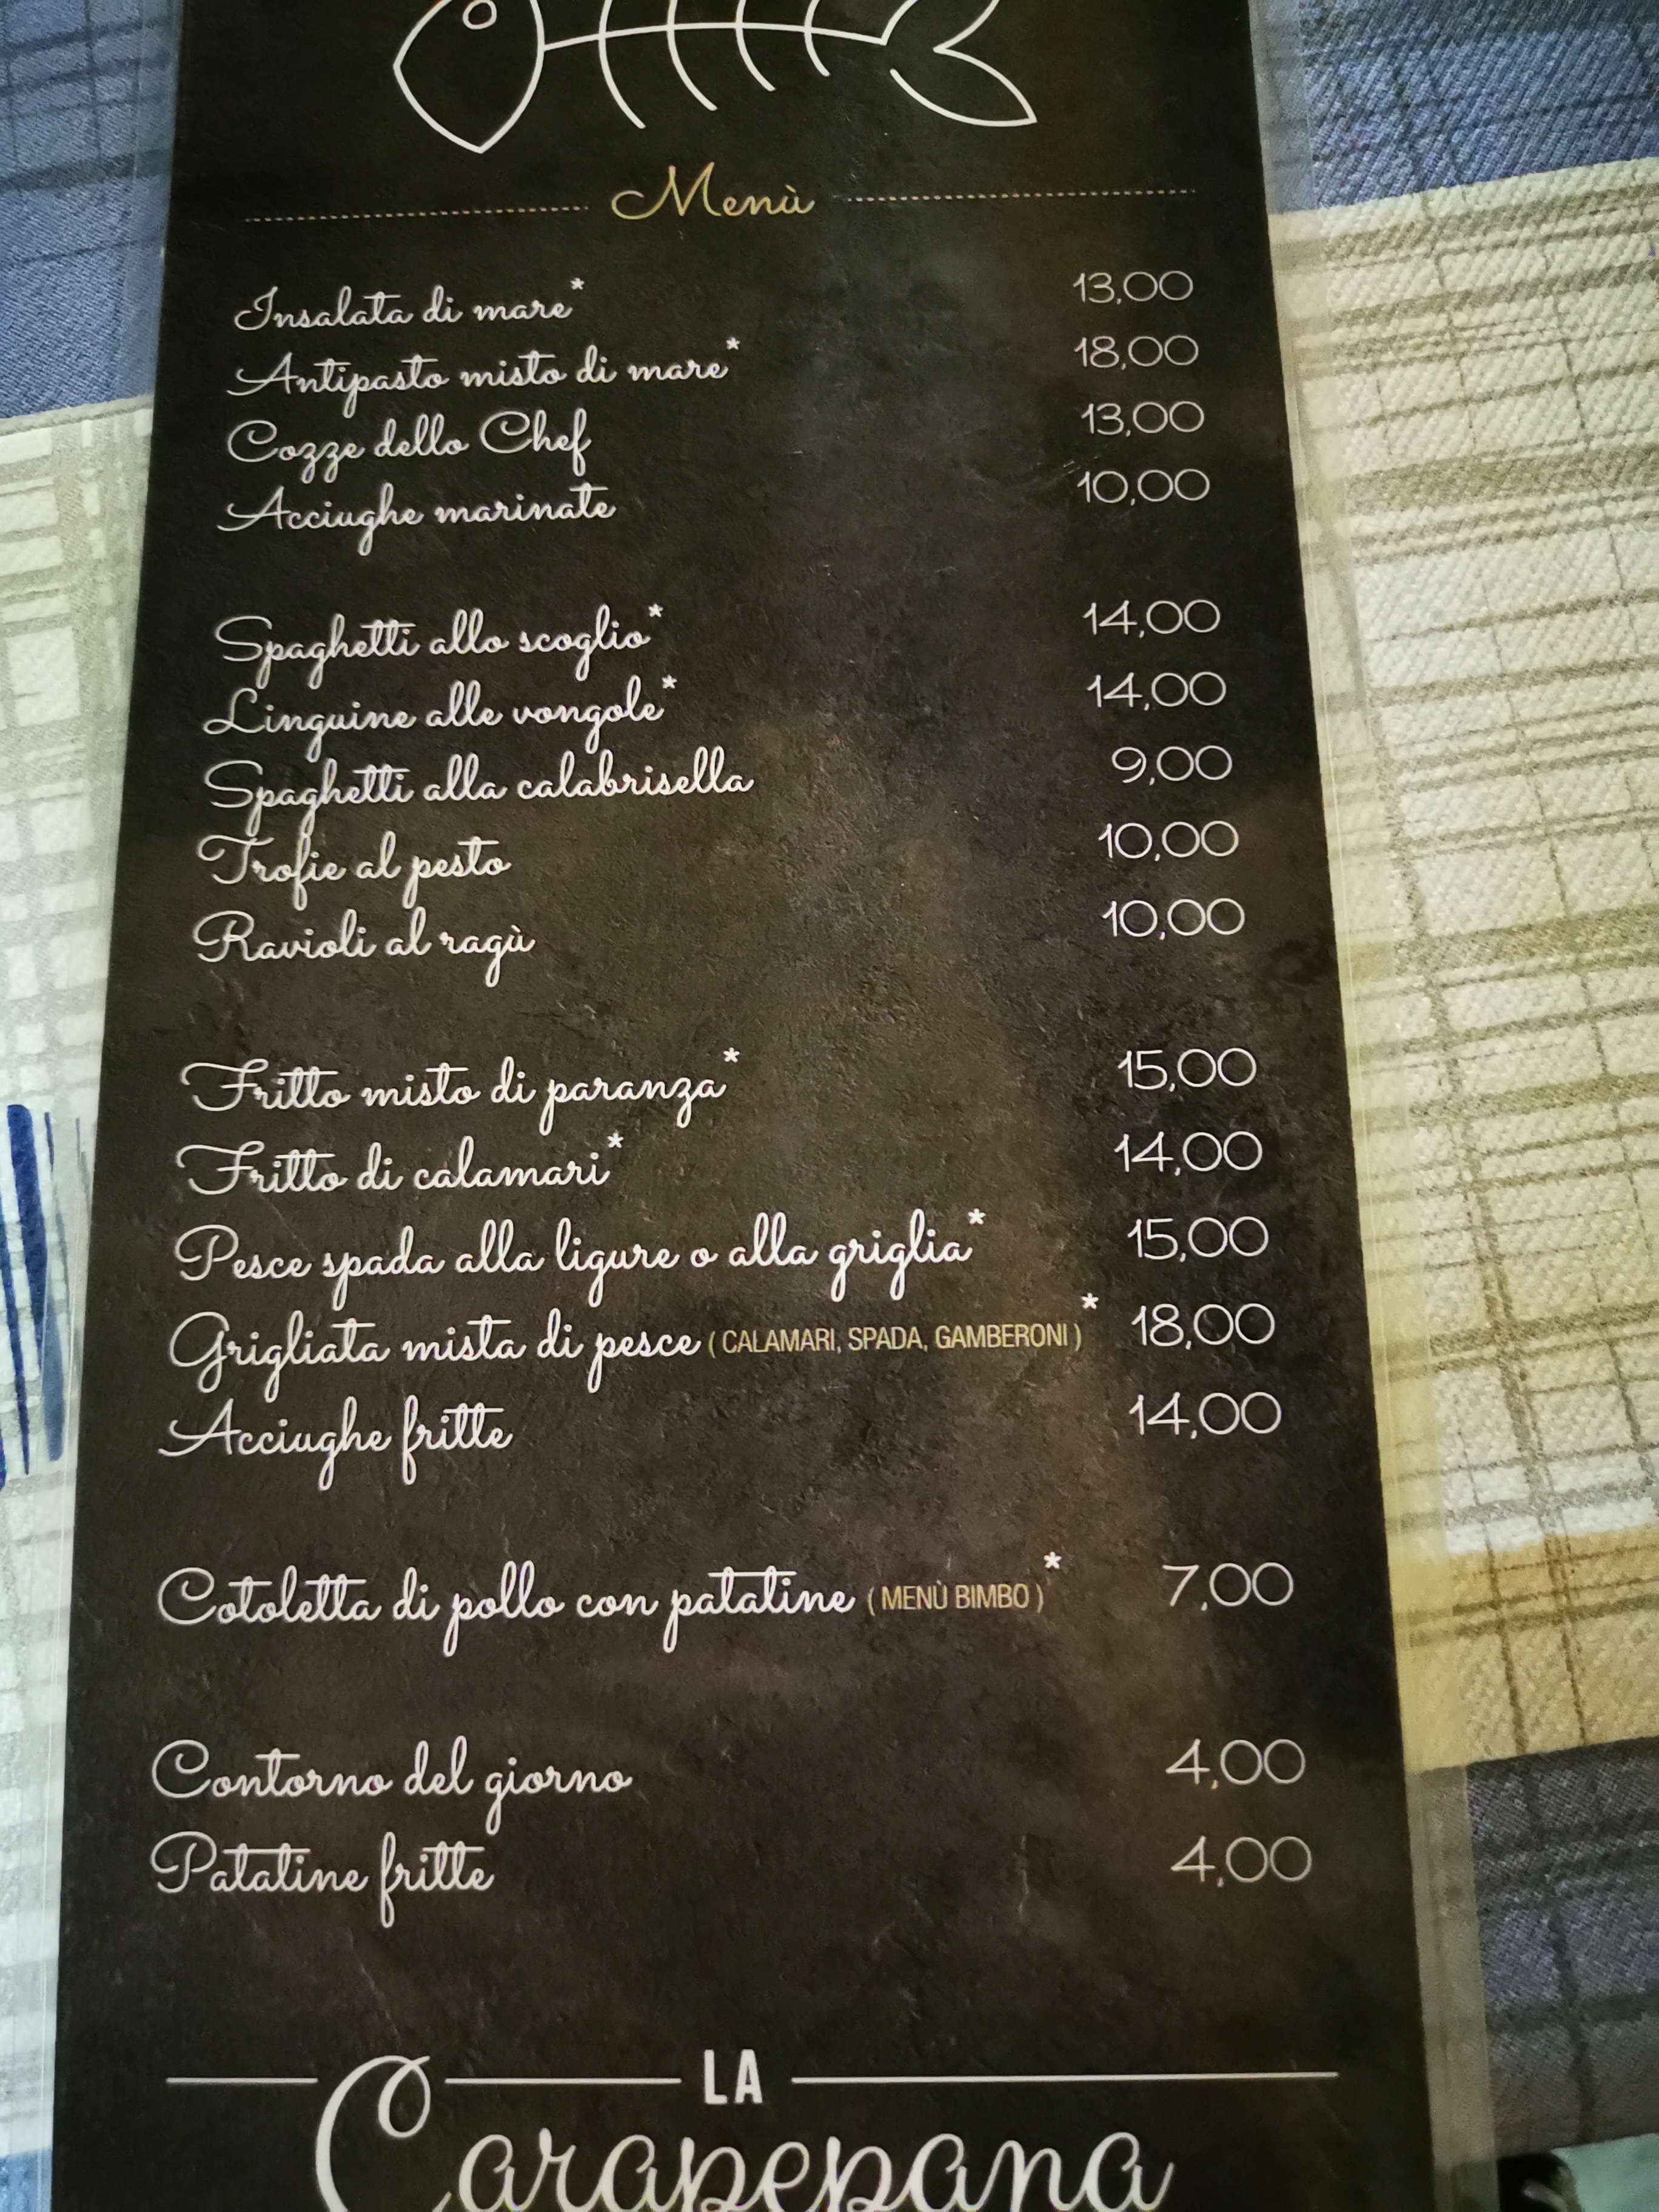 Menù
Insalata di mare* 13,00
Antipasto misto di mare* 18,00
Cozze dello Chef 13,00
Acciughe marinate 10,00
Spaghetti allo scoglio* 14,00
Linguine alle vongole* 14,00
Spaghetti alla calabrisella 9,00
Trofie al pesto 10,00
Ravioli al ragù 10,00
Fritto misto di paranza* 15,00
Fritto di calamari* 14,00
Pesce spada alla ligure o alla griglia* 15,00
Grigliata mista di pesce ( CALAMARI, SPADA, GAMBERONI )* 18,00
Acciughe fritte 14,00
Cotoletta di pollo con patatine ( MENÙ BIMBO )* 7,00
Contorno del giorno 4,00
Patatine fritte 4,00
LA
Carapepana